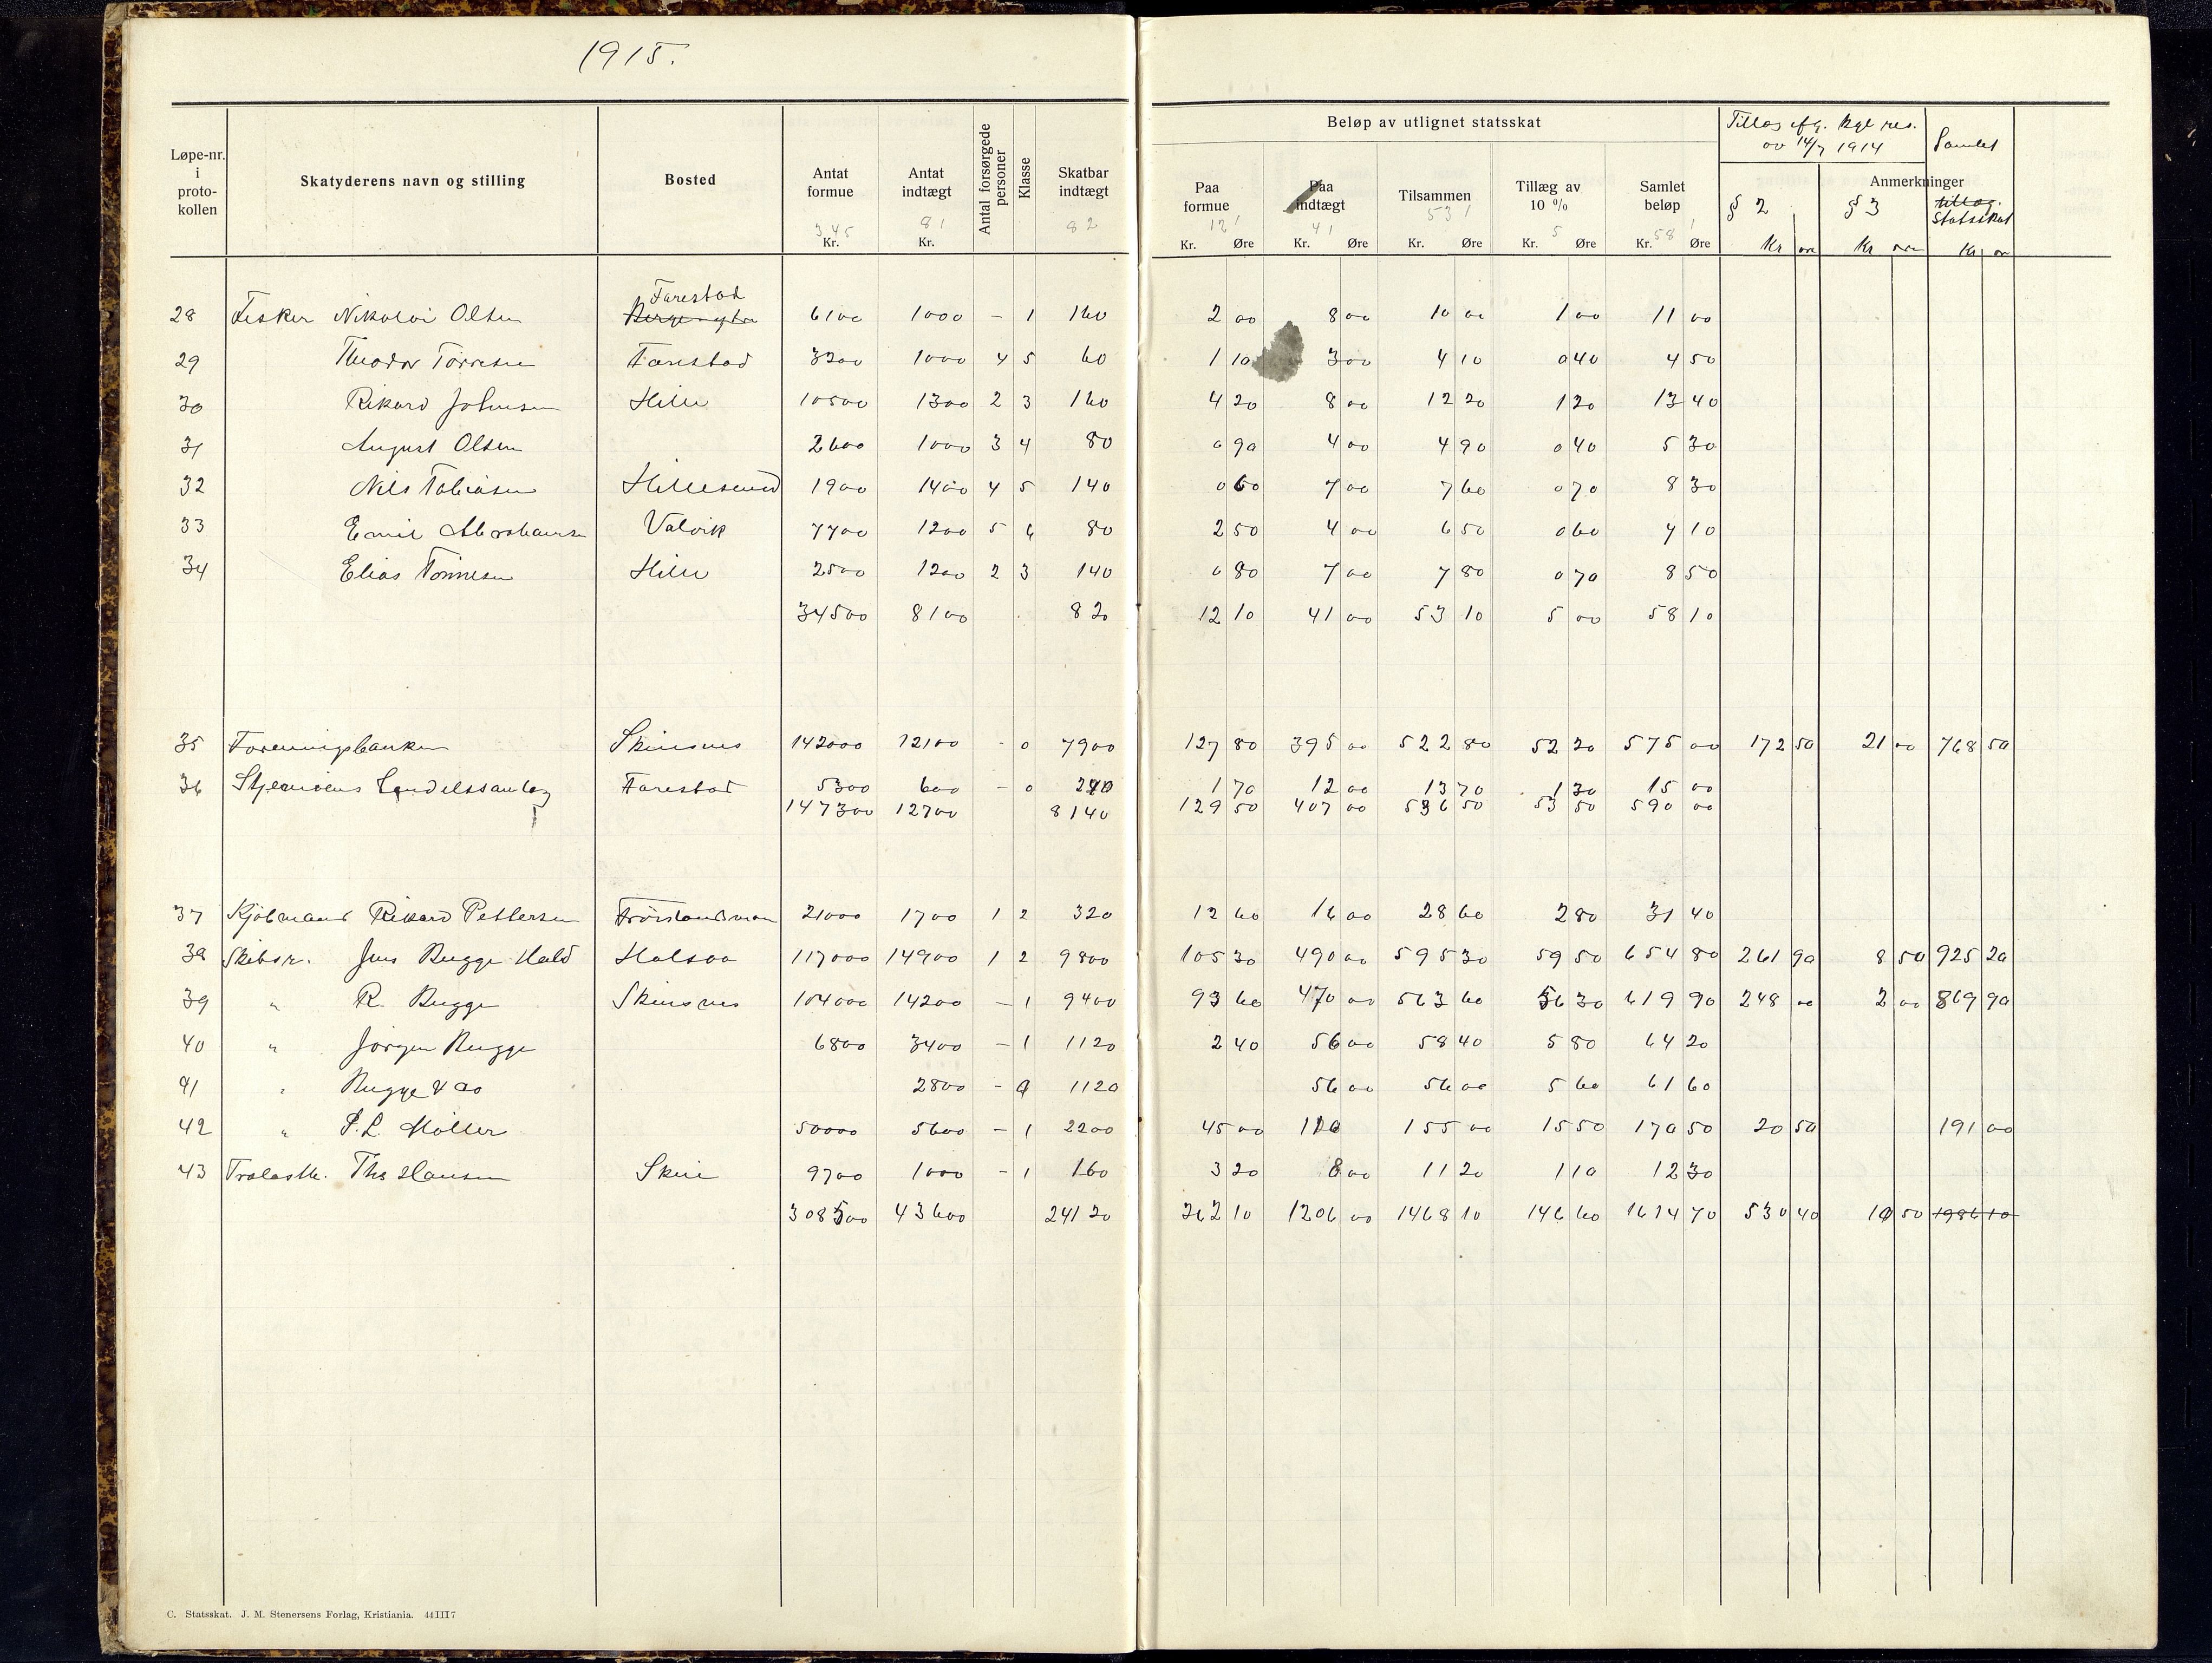 1915.
Løpe-nr. i proto-kollen
Skatyderens navn og stilling
Bosted
Antat formue 345 Kr.
Antat indtægt 81 Kr.
Antal forsørgede personer
Klasse
Skatbar indtægt 82
Beløp av utlignet statsskat
Paa formue 121 Kr. Øre
Paa indtægt 41 Kr. Øre
Tilsammen 531 Kr. Øre
Tillæg av 10 % 5 Kr. Øre
Samlet beløp 581 Kr. Øre
Tillæg efg. kgl res. av 14/7 1914
Samlet
Anmerkninger
§ 2 Kr øre
§ 3 Kr øre
tillæg. Statsskat Kr ør
Farestad
28 Fisker Nikolai Olsen 6100 1000 – 1 160 2 00 8 00 10 00 1 00 11 00
29 Theodor Torresen Farestad 3200 1000 4 5 60 1 10 3 00 4 10 0 40 4 50
30 Rikard Johnsen Hille 10500 1300 2 3 160 4 20 8 00 12 20 1 20 13 40
31 August Olsen 2600 1000 3 4 80 0 90 4 00 4 90 0 40 5 30
32 Nils Tobiasen Hillesund 1900 1400 4 5 140 0 60 7 00 7 60 0 70 8 30
33 Emil Abrahamsen Valvik 7700 1200 5 6 80 2 50 4 00 6 50 0 60 7 10
34 Elias Tønnesen Hille 2500 1200 2 3 140 0 80 7 00 7 80 0 70 8 50
34500 8100 820 12 10 41 00 53 10 5 00 58 10
35 Foreningsbanken Skinsnes 142000 12100 - 0 7900 127 80 395 00 522 80 52 20 575 00 172 50 21 00 768 50
36 Farestad 5300 600 - 0 240 1 70 12 00 13 70 1 30 15 00
147300 12700 8140 129 50 407 00 536 50 53 50 590 00
37 Kjøbmand Rikard Pettersen 21000 1700 1 2 320 12 60 16 00 28 60 2 80 31 40
38 Skibsr. Jens Bugge Hald Halsaa 117000 14900 1 2 9800 105 30 490 00 595 30 59 50 654 80 261 90 8 50 925 20
39 " R. Bugge Skinsnes 104000 14200 – 1 9400 93 60 470 00 563 60 56 30 619 90 248 00 2 00 869 90
40 " Jørgen Bugge 6800 3400 – 1 1120 2 40 56 00 58 40 5 80 64 20
41 " Bugge & Co 2800 - 0 1120 56 00 56 00 5 60 61 60
42 " P. L. Møller 50000 5600 – 1 2200 45 00 110 155 00 15 50 170 50 20 50 191 00
43 Trælasth. Ths Hansen 9700 1000 - 1 160 3 20 8 00 11 20 1 10 12 30
308500 43600 24120 262 10 1206 00 1468 10 146 60 1614 70 530 40 10 50 1986 10
C. Statsskat. J. M. Stenersens Forlag, Kristiania. 44 III 7